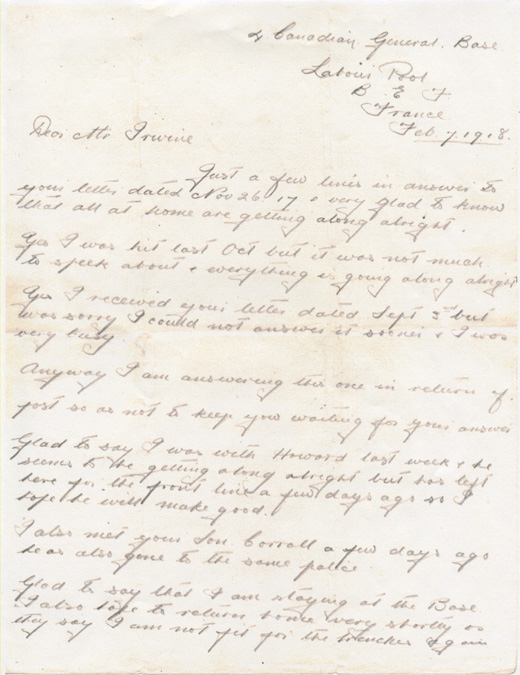 4 Canadian General. Base
Labour Pool
B. E. F
France
Feb. 7. 1918.
Dear Mr Irwine
Just a few lines in answer to
your letter dated Nov 26 17 & very glad to know
that all at home are getting along alright.
Yes I was hit last Oct but it was not much
to speek about & everything is going along alright
Yes I received your letter dated Sept but
was sorry I could not answer it sooner & I was
very busy.
Anyway I am answering this one in return of
post so as not to keep you waiting for your answer
Glad to say I was with Howard last week & he
seems to be getting along alright but has left
here for the front line a few days ago so I
hope he will make good.
I also met your Son Corrall a few days ago
he as also gone to the same
Glad to say that I am staying at the Base.
I also hope to return home very shortly as
they say I am not fit for the trenches again